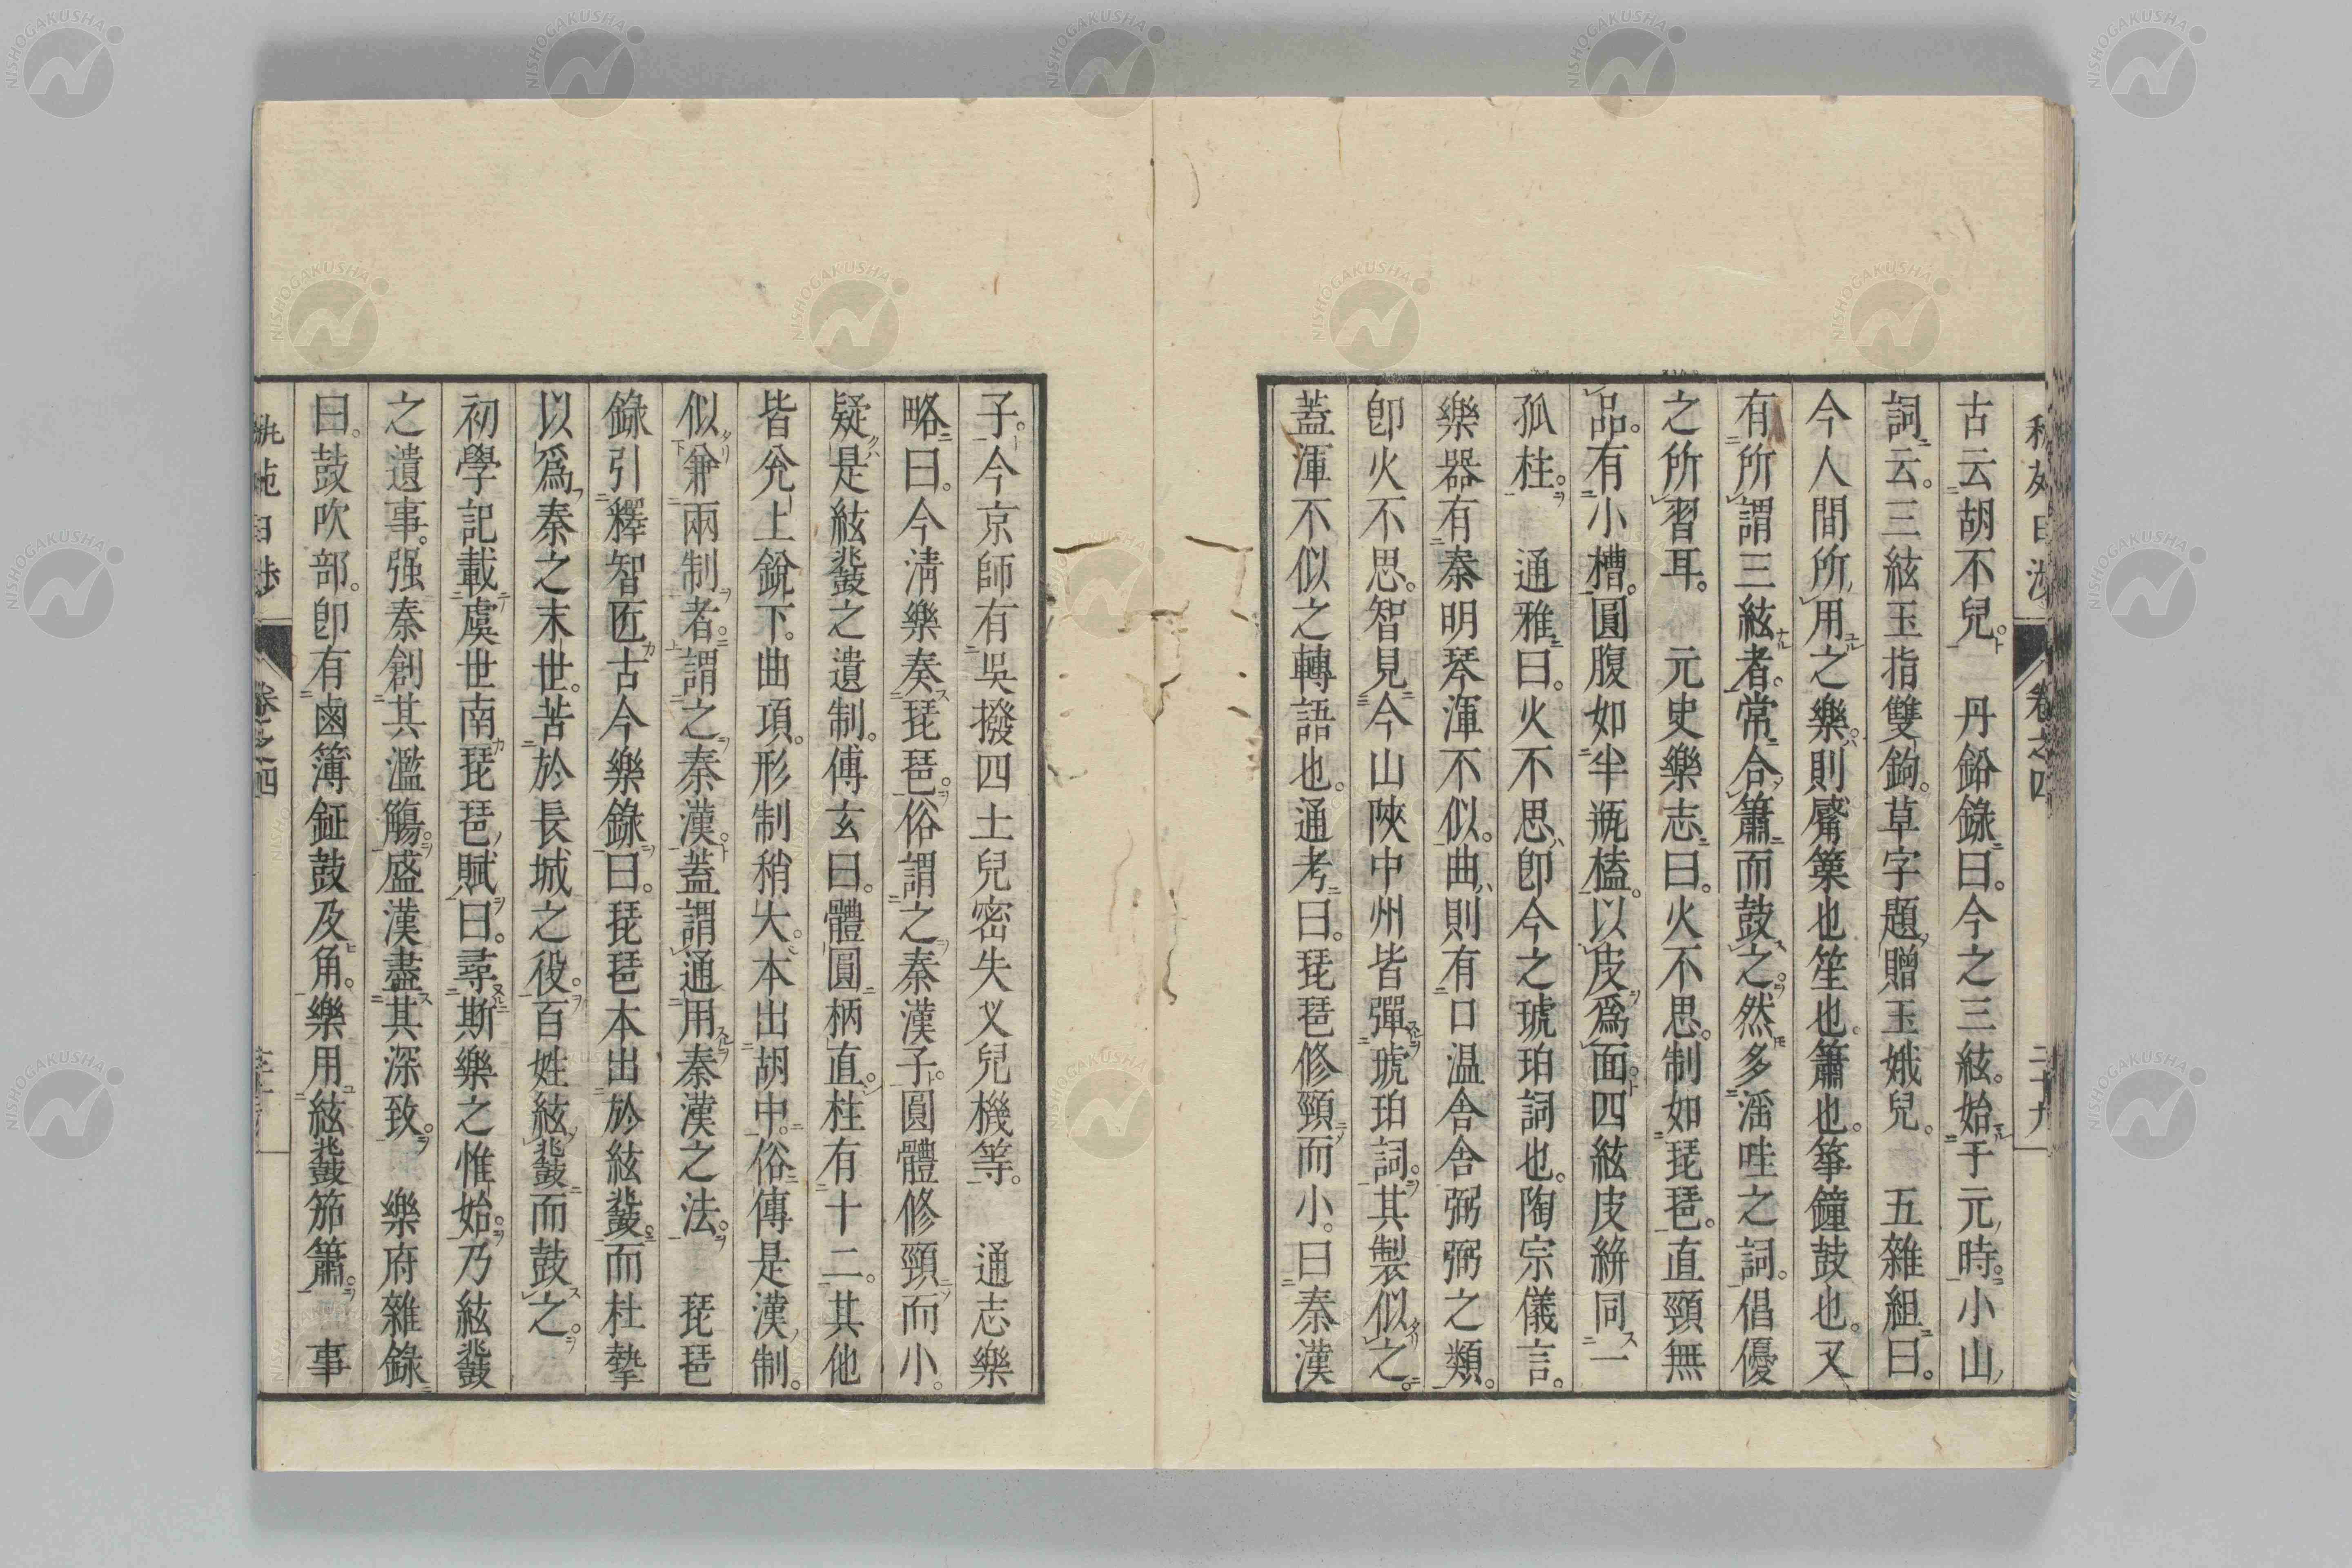 卷之四
二十九
古云胡不兒。丹鉛錄曰。今之三絃。始于元時。小山
詞云。三絃玉指雙鉤。草字題贈玉娥兒。五雜組曰。
今人間所用之樂。則觱篥也笙也。簫也。箏鐘鼓也。又
有所謂三絃者。常合簫而鼓之。然多淫哇之詞。倡優
之所習耳。元史樂志曰。火不思。制如琵琶。直頸無
品。有小槽。圓腹如半瓶榼。以皮爲面。四絃皮絣同一
孤柱。通雅曰。火不思。卽今之琥珀詞也。陶宗儀言。
樂器有秦明琴渾不似。曲則有口温舎舎弼弼之類。
卽火不思。智見今山陝中州皆彈琥珀詞。其製似之。
蓋渾不似之轉語也。通考曰。琵琶修頸而小。曰秦漢
子。今京師有吳撥四土兒密失乂兒機等。通志樂
略曰。今淸樂奏琵琶。俗謂之秦漢子。圓體修頸而小。
疑是絃鼗之遺制。傅玄曰。體圓柄直。柱有十二。其他
皆兊上銳下。曲項。形制稍大。本出胡中。俗傳是漢制。
似兼兩制者。謂之秦漢。蓋謂通用秦漢之法。琵琶
錄引釋智匠古今樂錄曰。琵琶本出於絃鼗。而杜摯
以爲秦之末世。苦於長城之役。百姓絃鼗而鼓之。
初學記載虞世南琵琶賦曰。尋斯樂之惟始。乃絃鼗
之遺事。强秦創其濫觴。盛漢盡其深致。樂府雜錄
曰。鼓吹部。卽有鹵簿鉦鼓及角。樂用絃鼗笳簫。事
卷之四